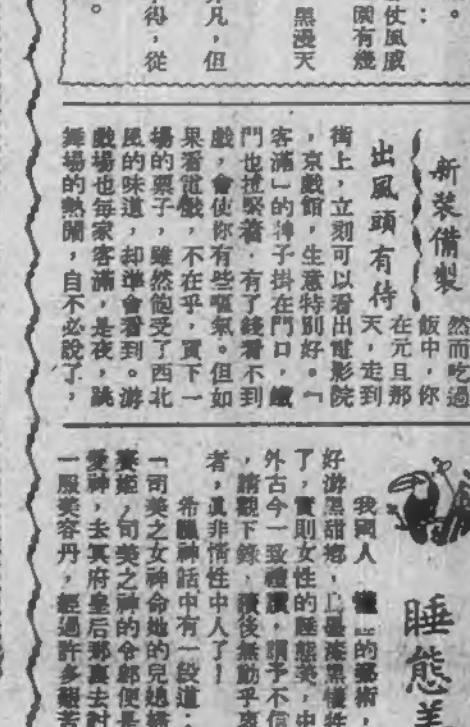 。
使風威
園有幾
黑漫天
凡，但
得，從
。
新裝備製
出風頭有待
然而吃過
飯中，你
在元旦那
天，走到
街上，立刻可以看出電影院
，京戲館，生意特別好。「
客滿」的牌子掛在門口，鐵
門也拉緊着，有了錢看不到
戲，會使你有些嘔氣。但如
果看電戲，不在乎，買下一
場的票子，雖然飽受了西北
風的味道，却準會看到。游
戲場也每家客滿，是夜，跳
舞場的熱鬧，自不必說了，
睡態美
我國人 的藝術，
好游黑甜鄉，
了，實則女性的睡態美，中
外古今一致禮讚，謂予不信
，請觀下錄，讀後無動乎衷
者，眞非情性中人了！
希臘神話中有一段道：
「司美之女神命她的兒媳
賽姬，司美之神的令郎便是
愛神，去冥府皇后那裏去討
一服美容丹，經過許多艱苦